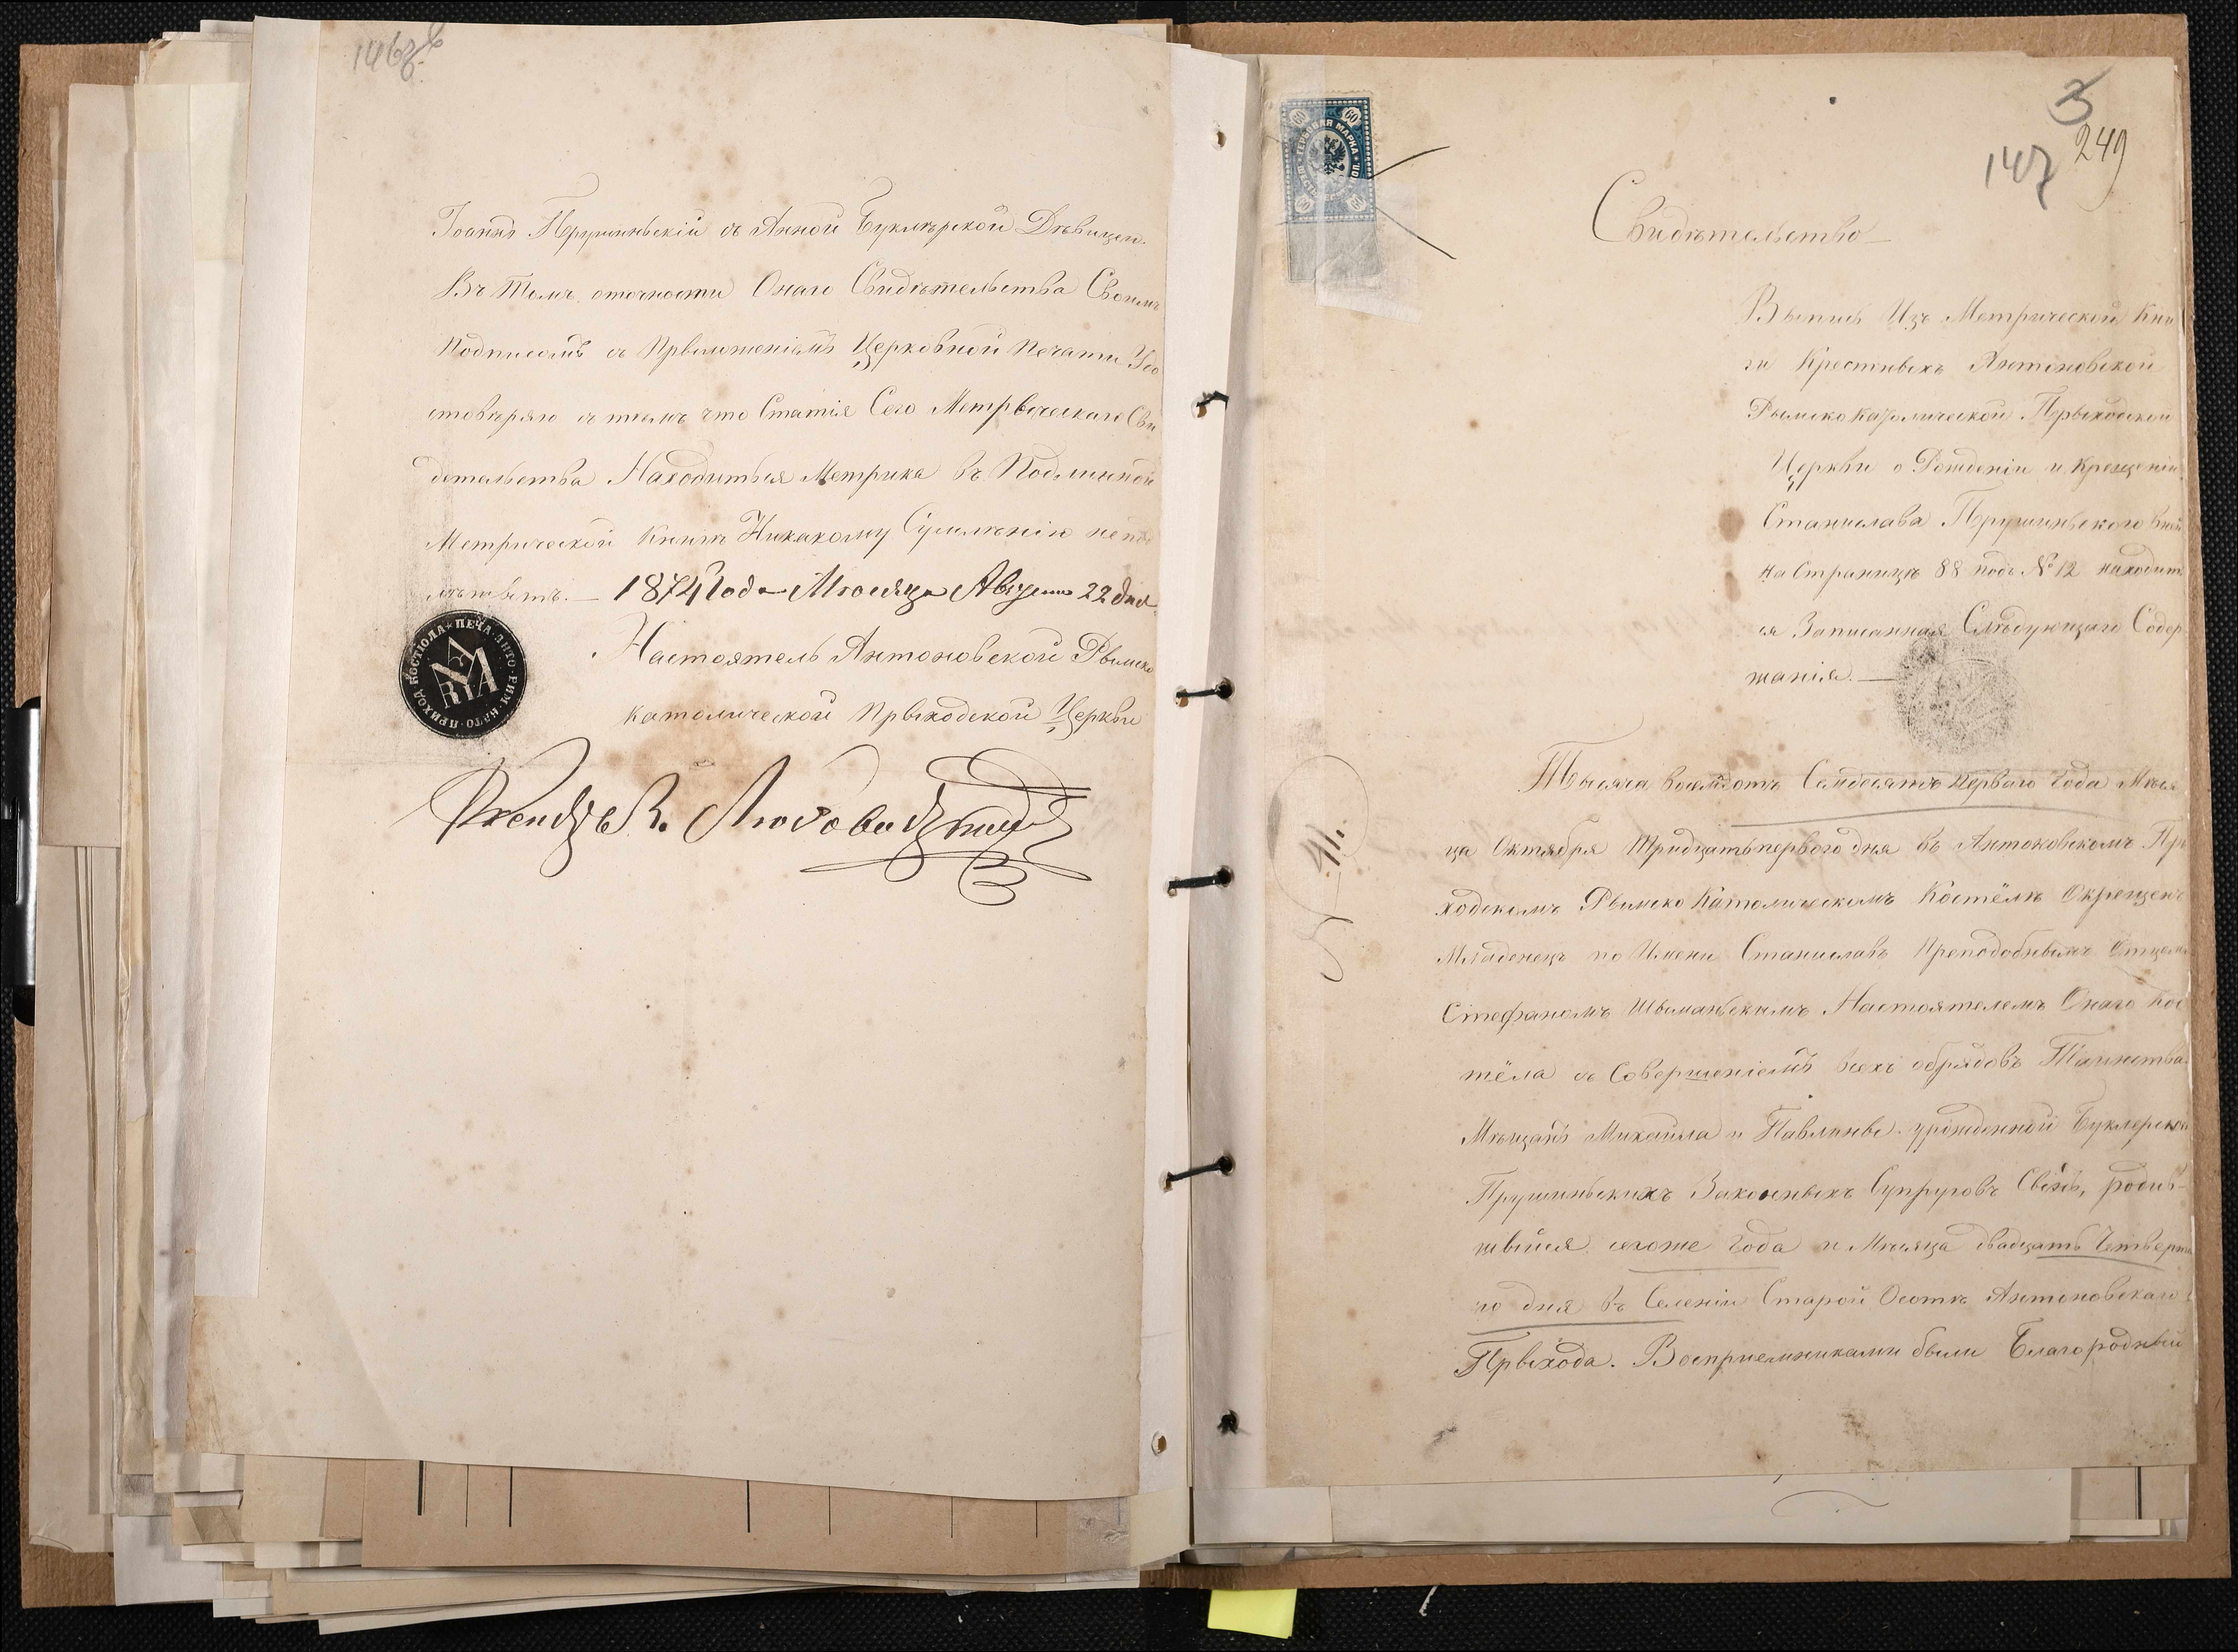 146об
Іоаннъ Прушиньскій съ Анной Буклѣрской Дѣвицею.
Въ Томъ оточности Онаго Свидѣтельства Своимъ
Подписомъ съ Прыложеніемъ Церковной Печати Удо
стовѣряю съ тѣмъ что Статія Сего Метрыческаго Сви
детельства Находиться Метрика въ Подлинной
Метрической Книгѣ Никакому Сумленію непод
лѣжитъ. — 1874 Года Мѣсяца Августа 22 дня.
Настоятель Антоновской Рымско
католической Прыходской Церкви
Ксендзъ В.
ПЕЧА. АНТО. РИМ. КАТО. ПРИХОД. КОСТІОЛА
MARIA
3
249
147
60 60
ГЕРБОВАЯ МАРКА
60 60
Свидѣтельство
Выпись Изъ Метрической Кни
ги Крестныхъ Антоновской
Рымско Каѳолической Прыходской
Церкви о Рожденіи и Крещеніи
Станислава Прушиньского
на Страницѣ 88 подъ № 12 находит
ся Записанная Слѣдующаго Содер
жанія. —
Тысяча восемсотъ Семдесятъ первого Года Мѣся
ца Октября Тридцатьпервого дня въ Антоновскомъ Пры
ходскомъ Рымско Католическомъ Костёлѣ Окрещенъ
Младенецъ по Имени Станиславъ Преподобнымъ Отцемъ
Стефаномъ Шыманьскимъ Настоятелемъ Онаго Кос
тёла съ Совершеніемъ всехъ обрядовъ Таинства.
Мѣщанъ Михаила и Павлины урожденной Буклерской
Прушиньскихъ Законныхъ Супруговъ Сынъ, родив-
шыйся сегоже Года и Мѣсяца двадцать Четверта
го дня въ Селеніи Старой Осотѣ Антоновскаго
Прыхода. Восприемниками были Благородный